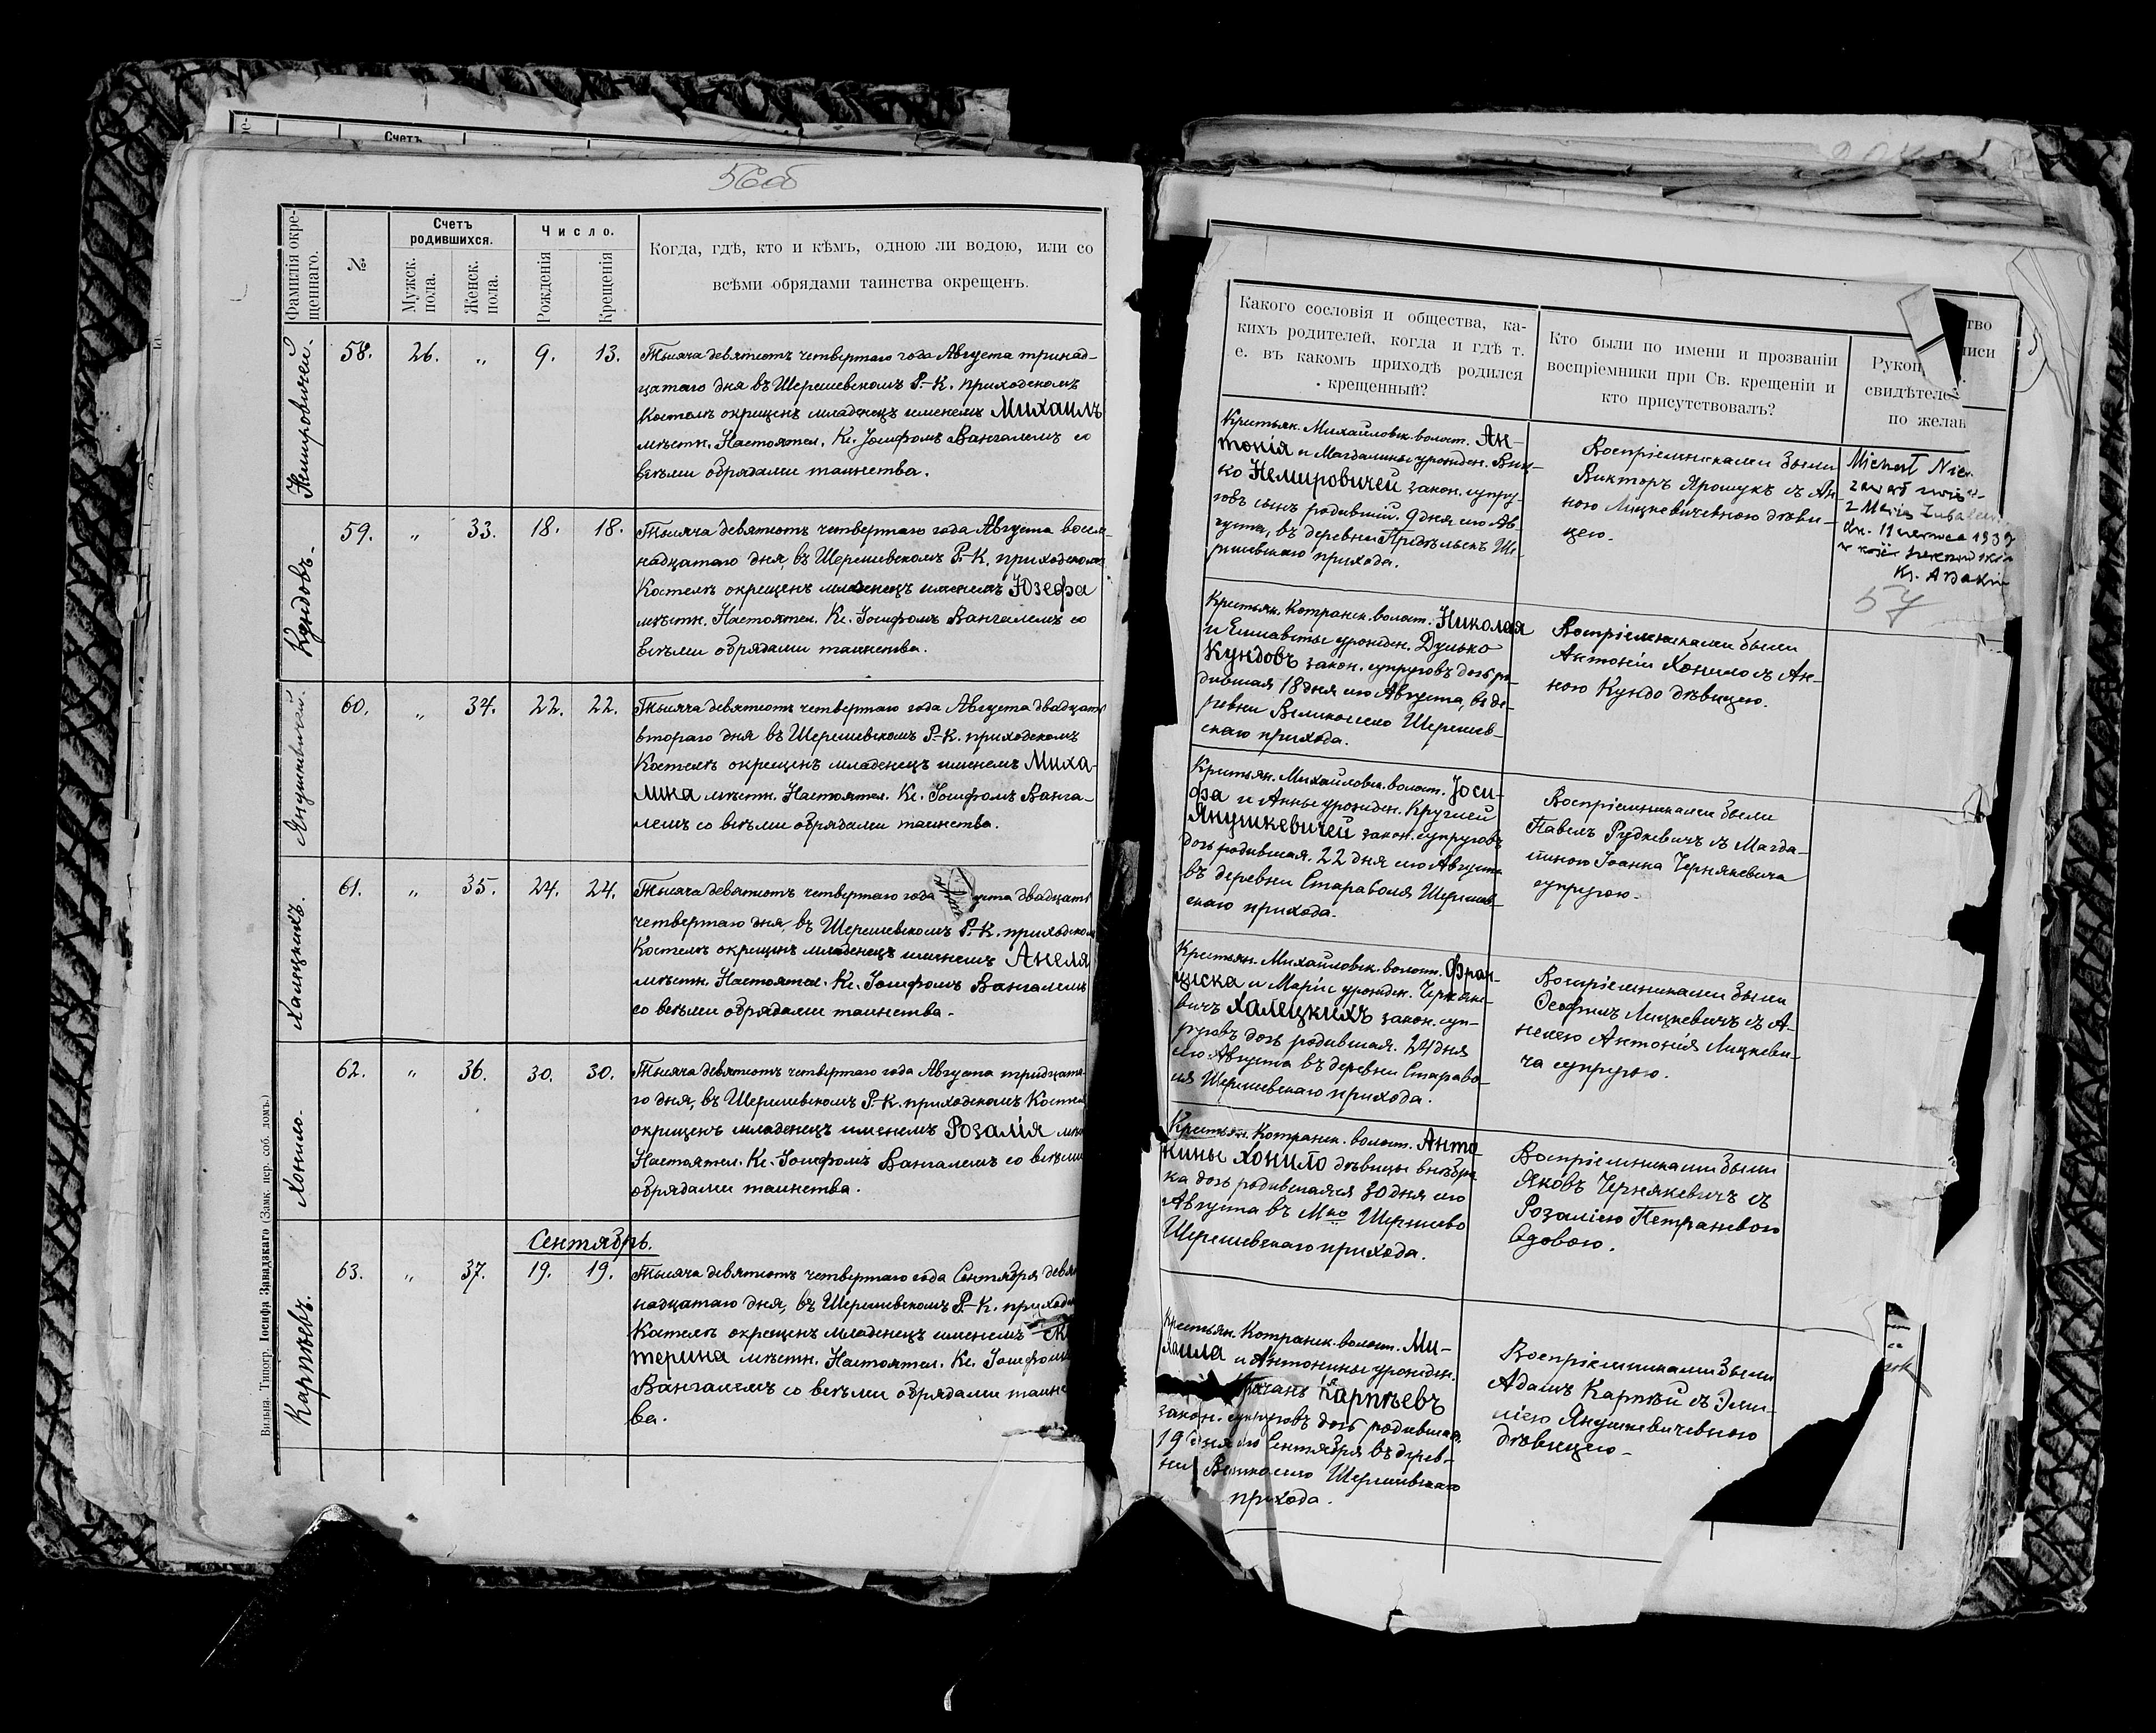 Счетъ
56об
Фамилія окре-
щеннаго.
№
Счетъ
родившихся.
Мужск.
пола.
Женск.
пола.
Число.
Рожденія
Крещенія
Когда, гдѣ, кто и кѣмъ, одною ли водою, или со
всѣми обрядами таинства окрещенъ.
Немировичей.
58.
26.
„
9.
13.
Тысяча девятсотъ четвертаго года Августа тринад-
цатаго дня въ Шерешевскомъ Р.-К. приходскомъ
Костелѣ окрещенъ младенецъ именемъ Михаилъ
мѣстн. Настоятел. Кс. Іосифомъ Вангалемъ со
всѣми обрядами таинства.
Кундовъ.
59.
„
33.
18.
18.
Тысяча девятсотъ четвертаго года Августа восем-
надцатаго дня, въ Шерешевскомъ Р.-К. приходскомъ
Костелѣ окрещенъ младенецъ именемъ Юзефа
мѣстн. Настоятел. Кс. Іосифомъ Вангалемъ со
всѣми обрядами таинства.
Янушкевичей.
60.
„
34.
22.
22.
Тысяча девятсотъ четвертаго года Августа двадцать
втораго дня въ Шерешевскомъ Р.-К. приходскомъ
Костелѣ окрещенъ младенецъ именемъ Миха-
лина мѣстн. Настоятел. Кс. Іосифомъ Ванга-
лемъ со всѣми обрядами таинства.
Халецкихъ.
61.
„
35.
24.
24.
Тысяча девятсотъ четвертаго года Августа двадцать
четвертаго дня, въ Шерешевскомъ Р.-К. приходском
Костелѣ окрещенъ младенецъ именемъ Анеля
мѣстн. Настоятел. Кс. Іосифомъ Вангалемъ
со всѣми обрядами таинства.
Хонило.
62.
„
36.
30.
30.
Тысяча девятсотъ четвертаго года Августа тридцата-
го дня, въ Шерешевскомъ Р.-К. приходскомъ Костел
окрещенъ младенецъ именемъ Розалія мѣс
Настоятел. Кс. Іосифомъ Вангалемъ со всѣми
обрядами таинства.
Сентябрь.
Карпѣевъ.
63.
„
37.
19.
19.
Тысяча девятсотъ четвертаго года Сентября девят
надцатаго дня, въ Шерешевскомъ Р.-К. приходск
Костелѣ окрещенъ младенецъ именемъ Ека
терина мѣстн. Настоятел. Кс. Іосифомъ
Вангалемъ со всѣми обрядами таинст
ва.
Вильна. Типогр. Іосифа Завадзкаго (Замк. пер. соб. домъ.)
Какого сословія и общества, ка-
кихъ родителей, когда и гдѣ т.
е. въ какомъ приходѣ родился
крещенный?
Кто были по имени и прозваніи
воспріемники при Св. крещеніи и
кто присутствовалъ?
Рукоп
свидѣтелс
по желан
тво
писи
Крестьян. Михайловск. волост. Ан-
тонія и Магдалины урожден. Виш-
ко Немировичей закон. супру-
говъ сынъ родивший. 9 дня сего Ав
густа, въ деревни Предѣльскъ Ше-
решевскаго прихода.
Воспріемниками были
Викторъ Ярошукъ съ Ан-
ною Мицкевичевною дѣви-
цею.
Michał Niem
zawarł związ-
z Marią
dn. 11 czerwca 1939
57
Крестьян. Котранск. волост. Николая
и Елисаветы урожден. Дулько
Кундовъ закон. супруговъ дочь ро-
дившая 18 дня сего Августа, въ де-
ревни Великосело Шерешев-
скаго прихода.
Воспріемниками были
Антоній Хонило съ Ан-
ною Кундо дѣвицею.
Крестьян. Михайловск. волост. Іоси-
фа и Анны урожден. Круглей
Янушкевичей закон. супруговъ
дочь родившая. 22 дня сего Августа
въ деревни Стараволя Шерешев-
скаго прихода.
Воспріемниками были
Павелъ Рудкевичъ съ Магда-
линою Іоанна Чернякевича
супругою.
Крестьян. Михайловск. волост. Фран-
циска и Маріи урожден. Черняке-
вичъ Халецкихъ закон. суп-
руговъ дочь родившая. 24 дня
сего Августа въ деревни Старавo-
ля Шерешевскаго прихода.
Воспріемниками были
Ѳеофилъ Мицкевичъ съ А-
нелею Антонія Мицкеви-
ча супругою.
Крестьян. Котранск. волост. Анто
нины Хонило дѣвицы внѣбра
ка дочь родившаяся 30 дня сего
Августа въ Мко Шерешево
Шерешевскаго прихода.
Воспріемниками были
Яковъ Чернякевичъ съ
Розаліею Петраневою
вдовою.
Крестьян. Котранск. волост. Ми-
хаила и Антонины урожден.
Карпѣевъ
закон. супруговъ дочь родившая
19 дня сего Сентября въ дерев-
ни Великосело Шерешевскаго
прихода.
Воспріемниками были
Адамъ Карпѣй съ Эми-
ліею Янушкевичевною
дѣвицею.